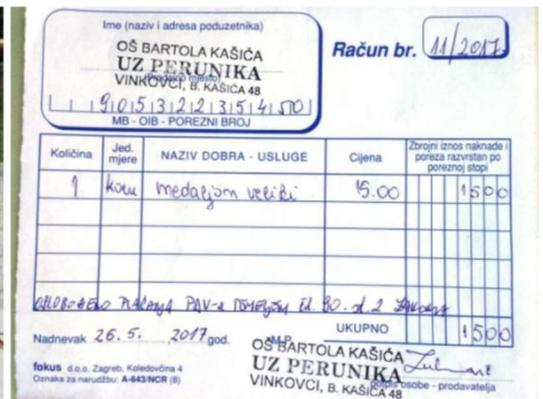 Ime (naziv i adresa poduzetnika)
OŠ BARTOLA KAŠIĆA
UZ PERUNIKA
VINKOVCI, B. KAŠIĆA 48
MB - OIB - POREZNI BROJ
Račun br. 11/2017.
Količina Jed. mjere NAZIV DOBRA - USLUGE Cijena Zbrojni iznos naknade i poreza razvrstan po poreznoj stopi
1 kom medaljom veliki 15.00 1500
OSLOBOĐENO PLAĆANJA PDV-a TEMELJEM čl. 90. st. 2 ZAKONA
UKUPNO 1500
Nadnevak 26. 5. 2017 god. M.P.
OŠ BARTOLA KAŠIĆA
UZ PERUNIKA
VINKOVCI, B. KAŠIĆA 48
potpis osobe - prodavatelja
fokus d.o.o. Zagreb, Koledovčina 4
Oznaka za narudžbu: A-643/NCR (B)